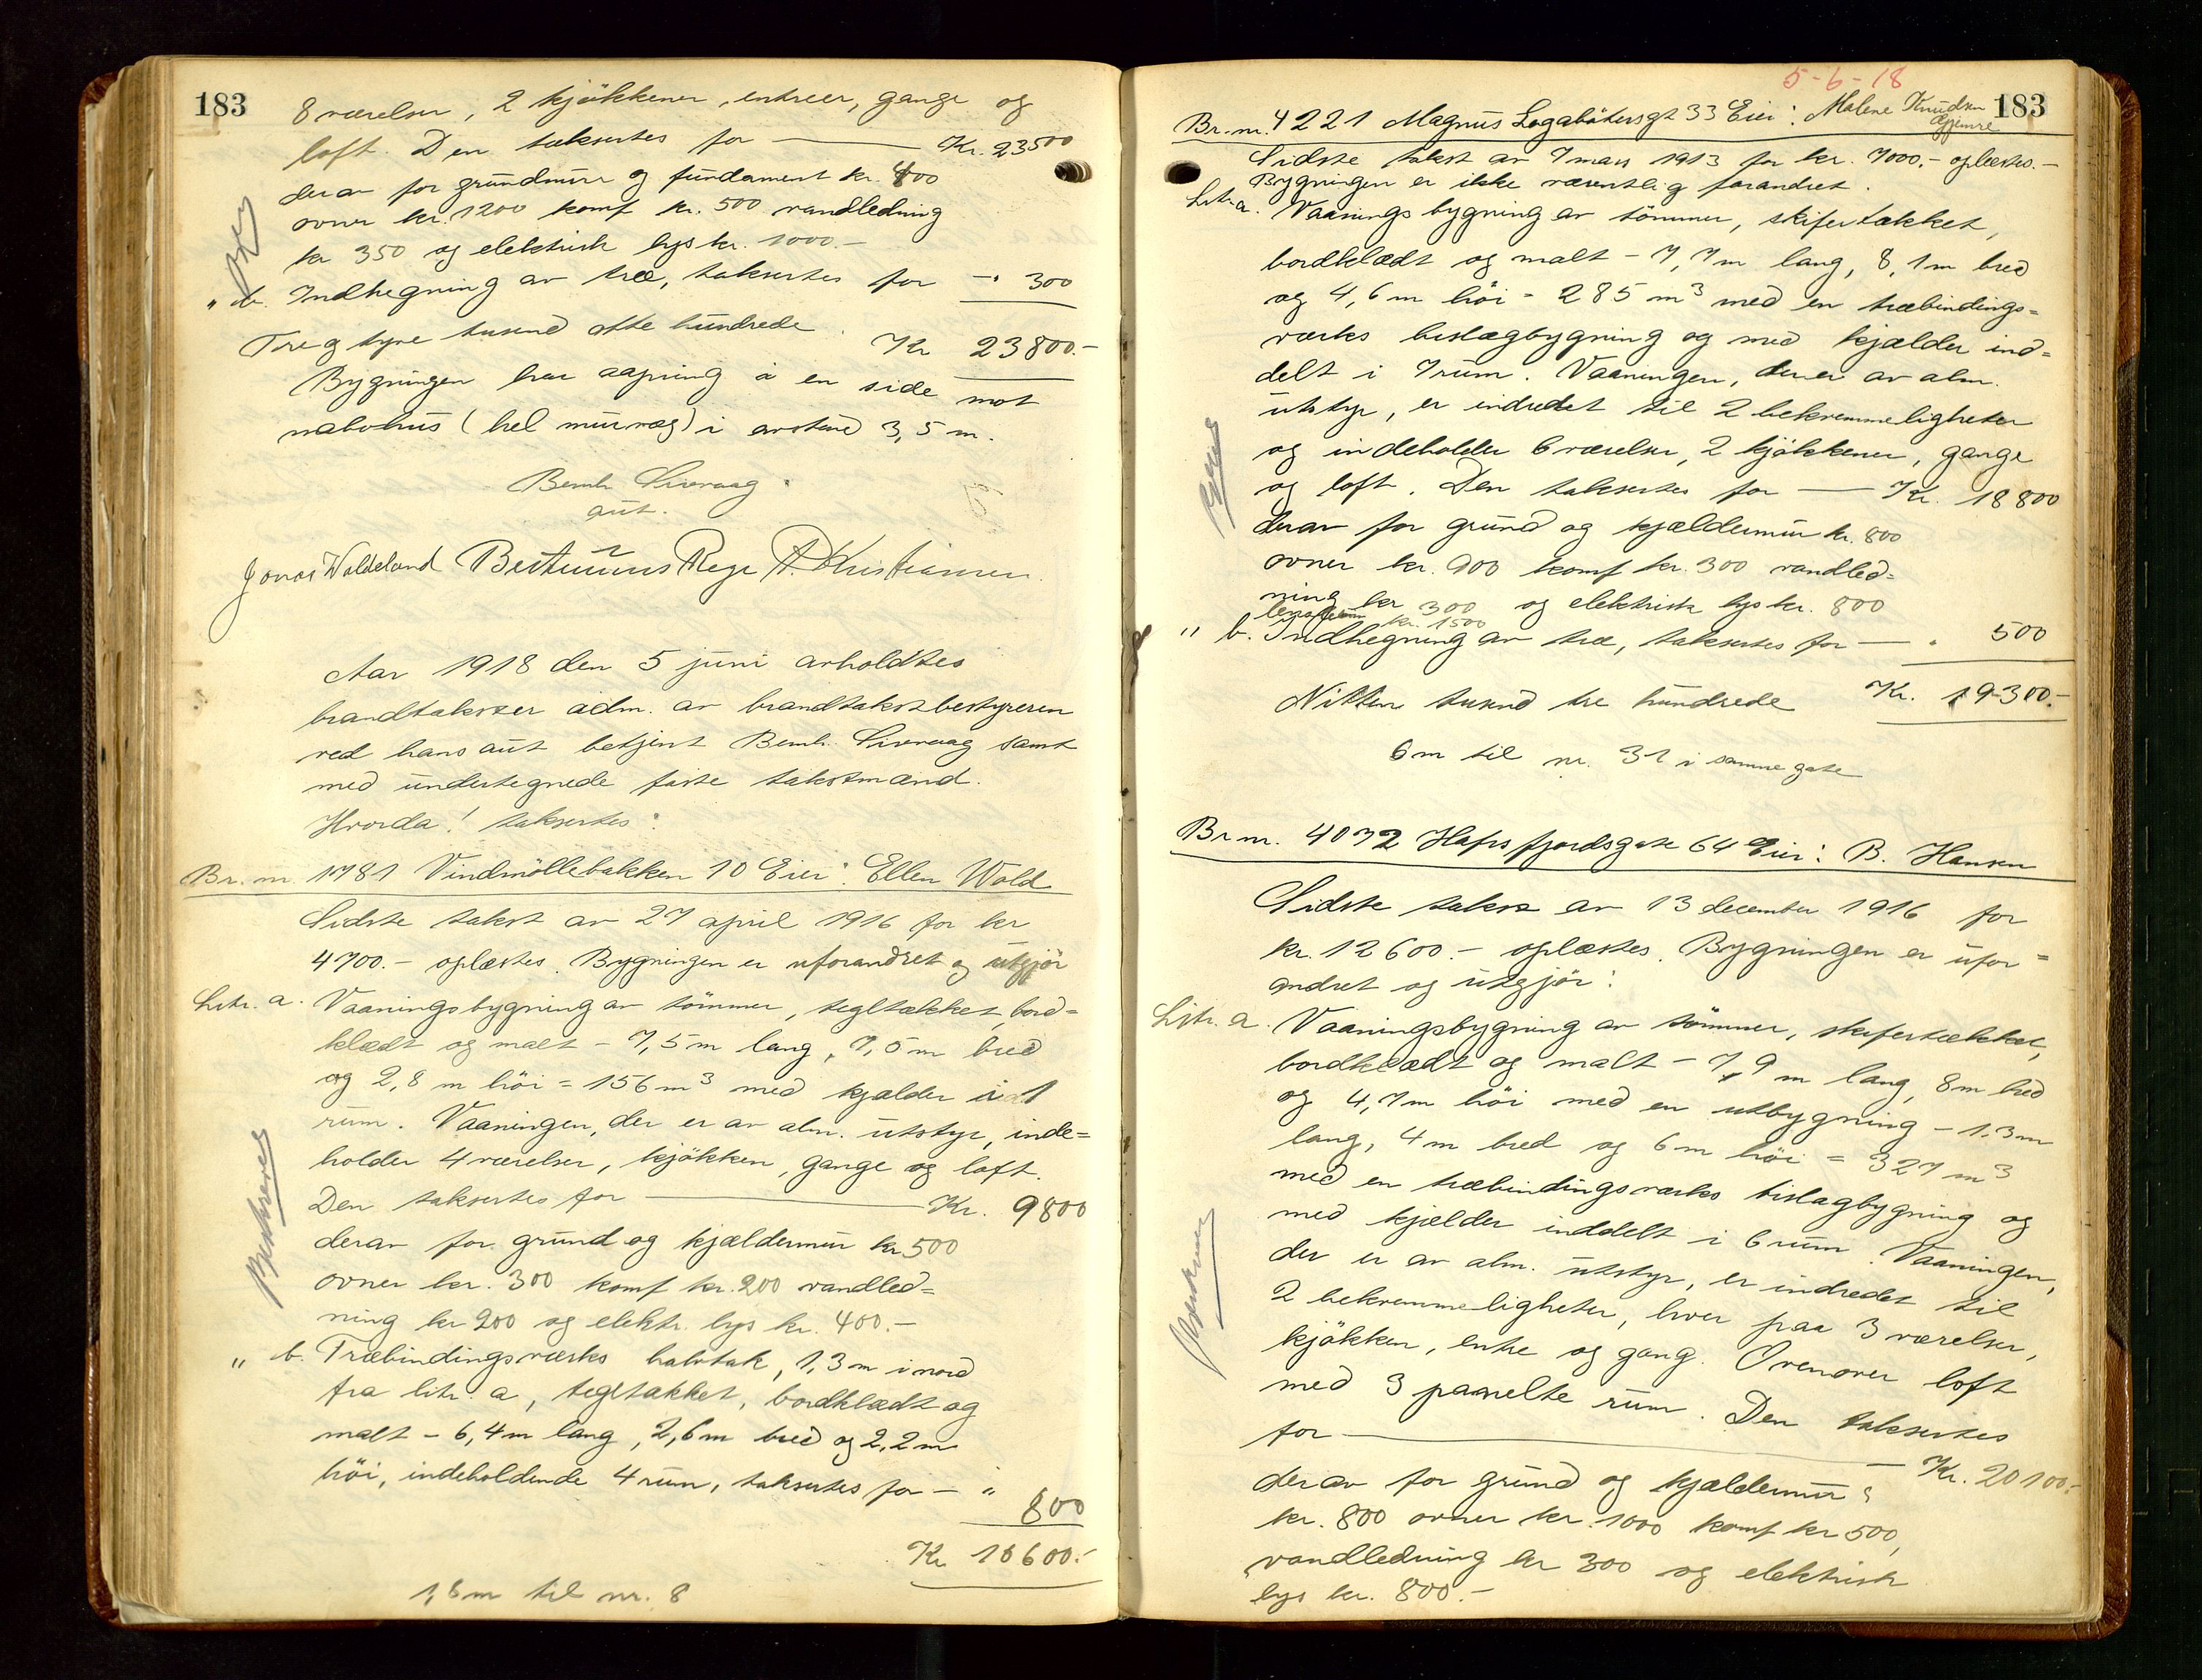 183
8 værelser, 2 kjøkkener, entreer, gange og
loft. Den taksertes for — Kr. 23500
derav for grundmur og fundament kr. 400
ovner kr. 1200 komf kr. 500 vandledning
kr 350 og elektrisk lys kr. 1000.-
" b. Indhegning av træ, taksertes for — " 300
Treogtyve tusend otte hundrede. Kr 23800.-
Bygningen har aapning i en side mot
nabohus (hel murvæg) i avstand 3,5 m.
Bernh.
aut.
Jonas Woldeland Kristiansen.
Aar 1918 den 5 juni avholdtes
brandtakster adm. av brandtakstbestyreren
ved hans aut betjent Bernh. samt
med undertegnede faste takstmænd.
Hvorda! taksertes:
Br. nr. 1781 Vindmøllebakken 10 Eier: Ellen Wold
Sidste takst av 27 april 1916 for kr
4700.- oplæstes. Bygningen er uforandret og utgjør
Litr. a. Vaaningsbygning av tømmer, tegltækket, bord=
klædt og malt - 7,5 m lang, 7,5 m bred
og 2,8 m høi = 156 m³ med kjælder i 1
rum. Vaaningen, der er av alm. utstyr, inde=
holder 4 værelser, kjøkken, gange og loft.
Den taksertes for — Kr. 9800
derav for grund og kjældermur kr 500
ovner kr. 300 komf kr. 200 vandled=
ning kr 200 og elektr. lys kr. 400.-
" b. Træbindingsværks halvtak, 1,3 m i nord
fra litr. a, tegltækket, bordklædt og
malt - 6,4 m lang, 2,6 m bred og 2,2 m
høi, indeholdende 4 rum, taksertes for — " 800
Kr 10600.-
1,6 m til nr. 8
5-6-18
183
Br. nr. 4221 Magnus Lagabøtersgt 33 Eier: Malene Knudsen
Sidste takst av 7 mars 1913 for kr. 7000.- oplæstes.-
Bygningen er ikke væsentlig forandret.
Litr. a. Vaaningsbygning av tømmer, skifertækket,
bordklædt og malt - 7,7 m lang, 8,1 m bred
og 4,6 m høi = 285 m³ med en træbindings=
værks bislagbygning og med kjælder ind=
delt i 7 rum. Vaaningen, der er av alm.
utstyr, er indredet til 2 bekvemmeligheter
og indeholder 6 værelser, 2 kjøkkener, gange
og loft. Den taksertes for — Kr. 18800
derav for grund og kjældermur kr. 800
ovner kr. 900 komf kr. 300 vandled=
ning kr 300 og elektrisk lys kr. 800
kr. 1500
" b. Indhegning av træ, taksertes for — " 500
Nitten tusend tre hundrede Kr. 19300.-
6 m til nr. 31 i samme gate
Br nr. 4072 Hafrsfjordsgate 64 Eier: B. Hansen
Sidste takst av 13 december 1916 for
kr. 12600.- oplæstes. Bygningen er ufor=
andret og utgjør:
Litr. a. Vaaningsbygning av tømmer, skifertækket,
bordklædt og malt - 7,9 m lang, 8 m bred
og 4,7 m høi med en utbygning - 1,3 m
lang, 4 m bred og 6 m høi = 327 m³
med en træbindingsværks bislagbygning og
med kjælder inddelt i 6 rum. Vaaningen,
der er av alm. utstyr, er indredet til
2 bekvemmeligheter, hver paa 3 værelser,
kjøkken, entre og gang. Ovenover loft
med 3 panelte rum. Den taksertes
for — Kr. 20100.-
derav for grund og kjældermur
kr. 800 ovner kr. 1000 komf kr 500,
vandledning kr 300 og elektrisk
lys kr. 800.-